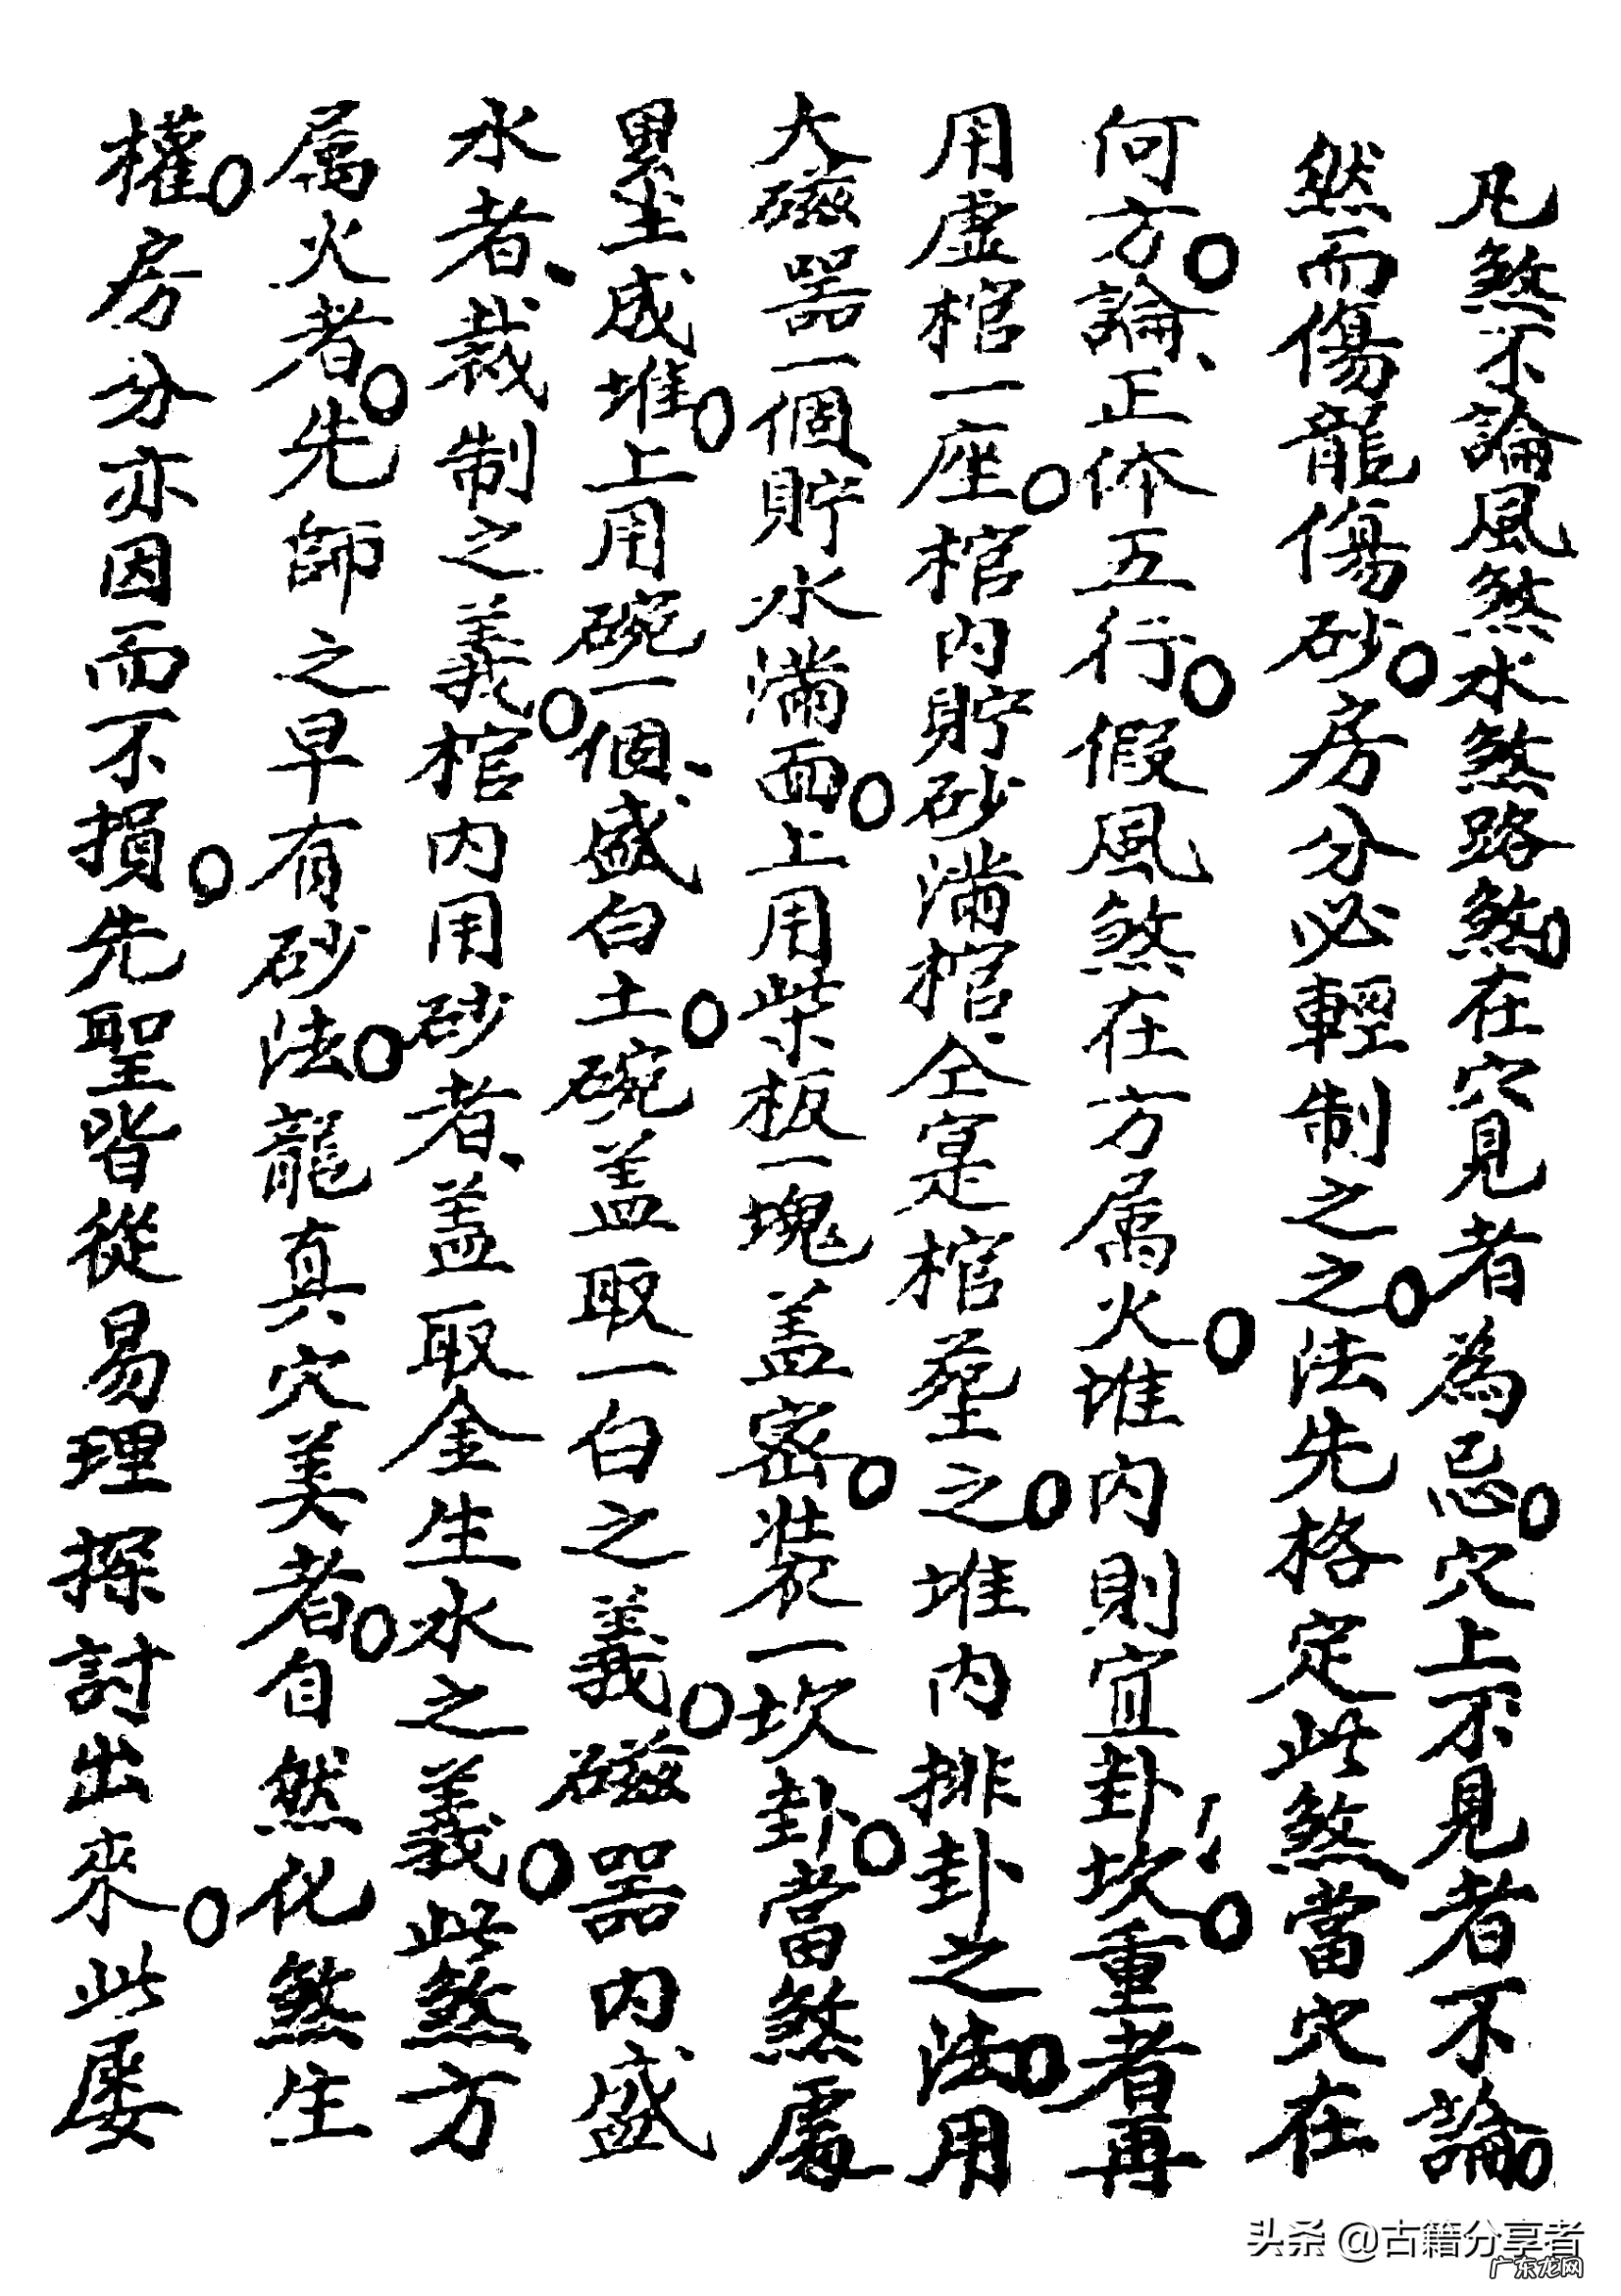 凡煞不論風煞水煞路煞。在穴見者為忌。穴上不見者不論。
然而傷龍傷砂。房分必輕制之之。法先格定此煞當穴在
何方。論、正体五行。假風煞在方属火。堆内則宜卦坎。重者再
用虚棺一座。棺内貯砂滿棺、仝寔棺塟之。堆内排卦之法。用
大磁器一個貯水滿面。上用柴板一塊盖密。装一坎卦。當煞處
累坐成堆。上用碗一個、盛白土。碗盖取一白之義。磁器内盛
水者、裁制之義。棺内用砂者、盖取金生水之義。此煞方
属火者。先師之早有砂法。龍真穴美者。自然化煞生
權。房分亦因而不損。先聖皆從易理探討出來。此屡
头条 @古籍分享者
广东龙网